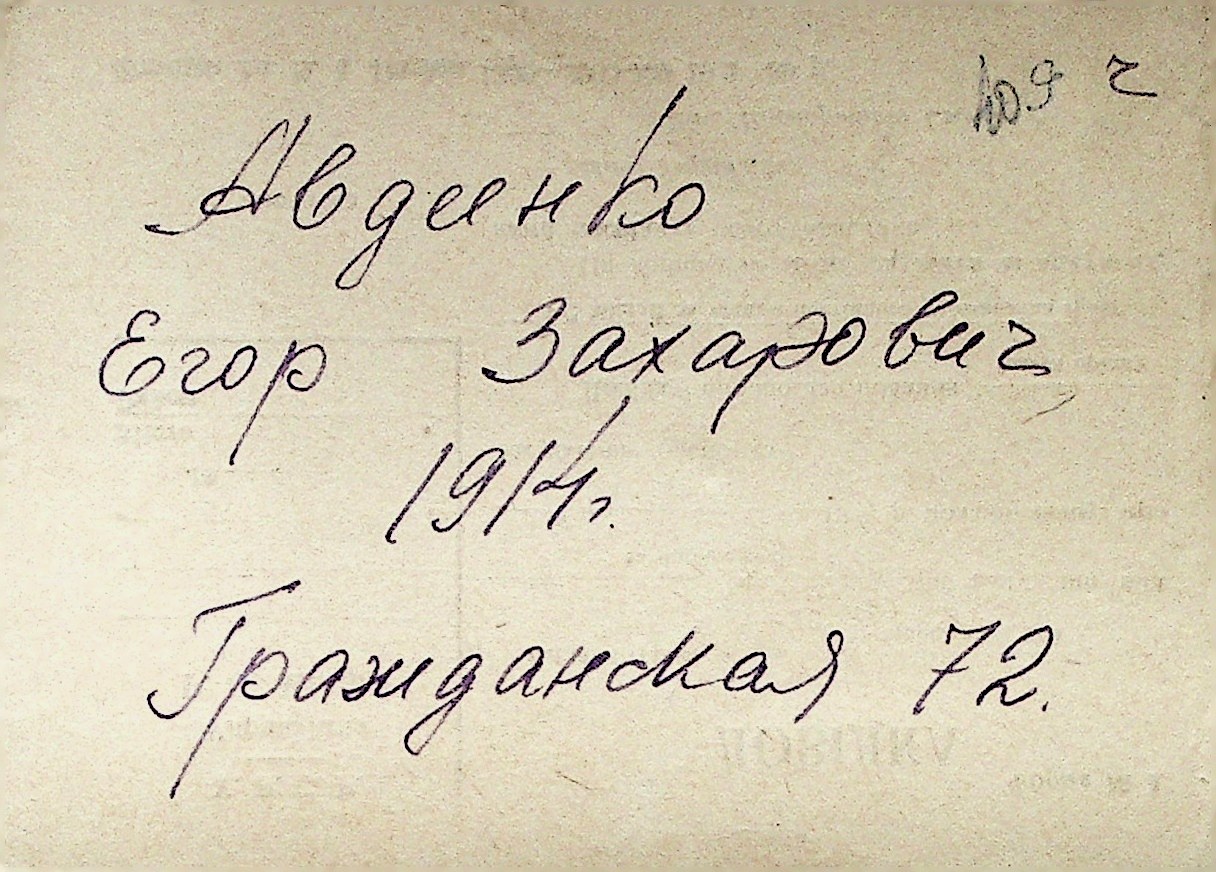 409 г
Авдиенко
Егор Захарович
1914г.
Гражданская 72.